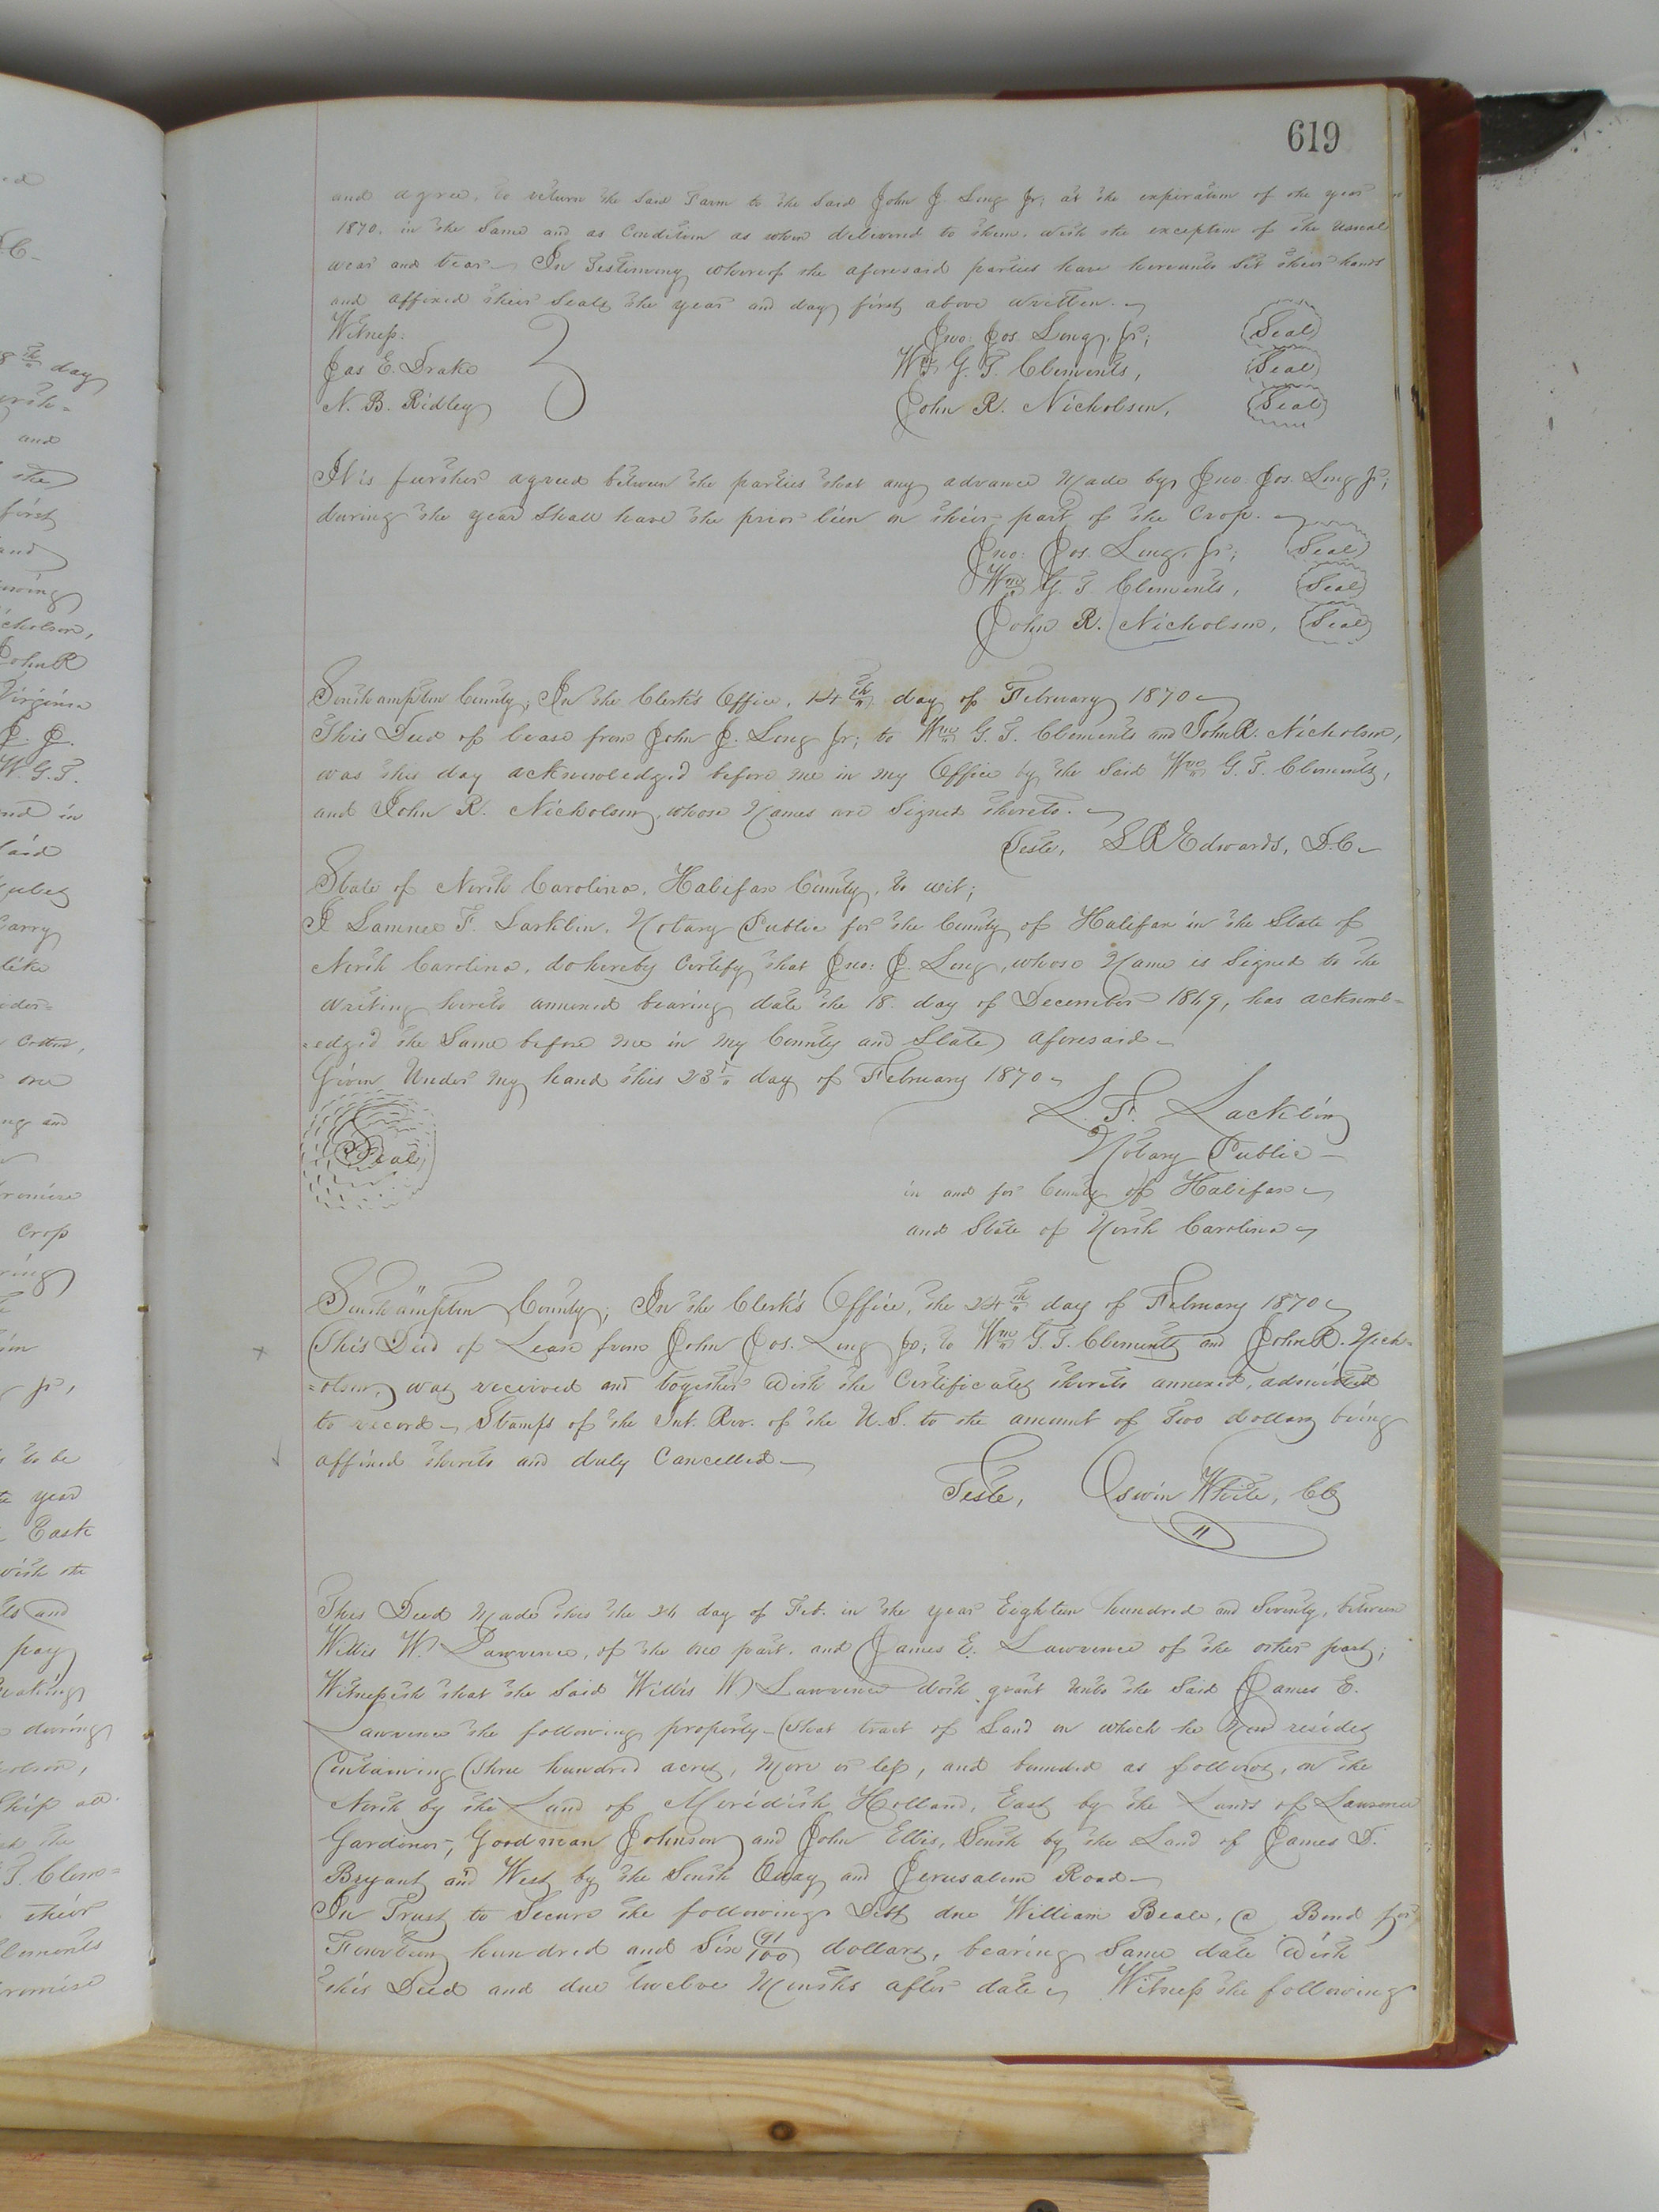 619
and agree, to return the said Farm to the said John J. Long Jr; at the expiration of the year
1870, in the same and as Condition as when delivered to them, with the exception of the usual
wear and tear. In Testimony whereof the aforesaid parties have hereunto Set their hands
and affixed their Seals the year and day first above written.
Witness:
Jno: Jos. Long, Jr; Seal
Jas E. Drake
Wm G. T. Clements, Seal
N. B. Ridley
John R. Nicholson, Seal
It is further agreed between the parties that any advance Made by Jno. Jos. Long Jr;
during the year Shall have the prior lien on their part of the Crop.
Jno: Jos. Long, Jr; Seal
Wm G. T. Clements, Seal
John R. Nicholson, Seal
Southampton County; In the Clerk's Office, 14th day of February 1870
This Deed of lease from John J. Long Jr; to Wm G. T. Clements and John R. Nicholson,
was this day acknowledged before me in my Office by the Said Wm G. T. Clements,
and John R. Nicholson, whose Names are Signed thereto.
Teste, L R Edwards, D.C.
State of North Carolina, Halifax County, to wit;
I F. Notary Public for the County of Halifax in the State of
North Carolina, do hereby Certify that Jno: J. Long, whose Name is Signed to the
writing hereto annexed bearing date the 18. day of December 1869, has acknowl=
=edged the Same before me in my County and State aforesaid
Given Under my hand this 23 day of February 1870
L. F. Lacklin
Notary Public
Seal
in and for County of Halifax
and State of North Carolina
Southampton County; In the Clerk's Office, the 24th day of February 1870
This Deed of Lease from John Jos. Long Jr; to Wm G. T. Clements and John R. Nich=
=olson, was received and together with the Certificates thereto annexed, admitted
to record. Stamps of the Int. Rev. of the U.S. to the amount of Two dollars being
affixed thereto and duly Cancelled
Teste, Oswin White, CC
This Deed Made this the 24 day of Feb. in the year Eighteen hundred and Seventy, between
Willis W. Lawrence, of the one part, and James E. Lawrence of the other part;
Witnesseth that the Said Willis W. Lawrence doth grant unto the Said James E.
Lawrence the following property That tract of Land on which he Now resides
Containing Three hundred acres, More or less, and bounded as follows, on the
North by the Land of Meredith Holland, East by the Lands of Lawrence
Gardner, Goodman Johnson and John Ellis, South by the Land of James D.
Bryant and West by the South Quay and Jerusalem Road
In Trust to Secure the following Debt due William Beale, a Bond for
Fourteen hundred and Six 91/100 dollars, bearing Same date with
this Deed and due twelve Months after date Witness the following